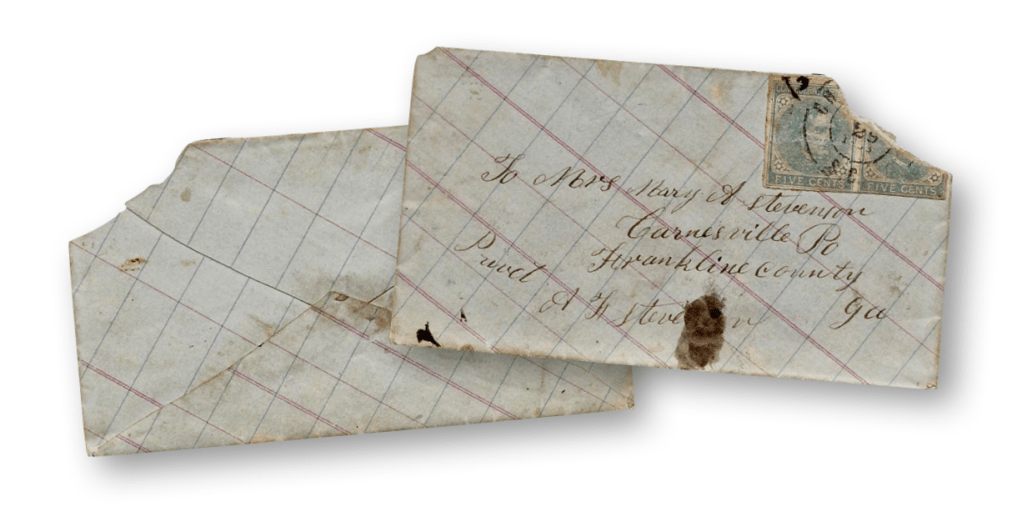 To Mrs Mary A Stevenson
Carnesville Po
Frankline county
ga
A F Steve n
FIVE CENTS
FIVE CENTS
29